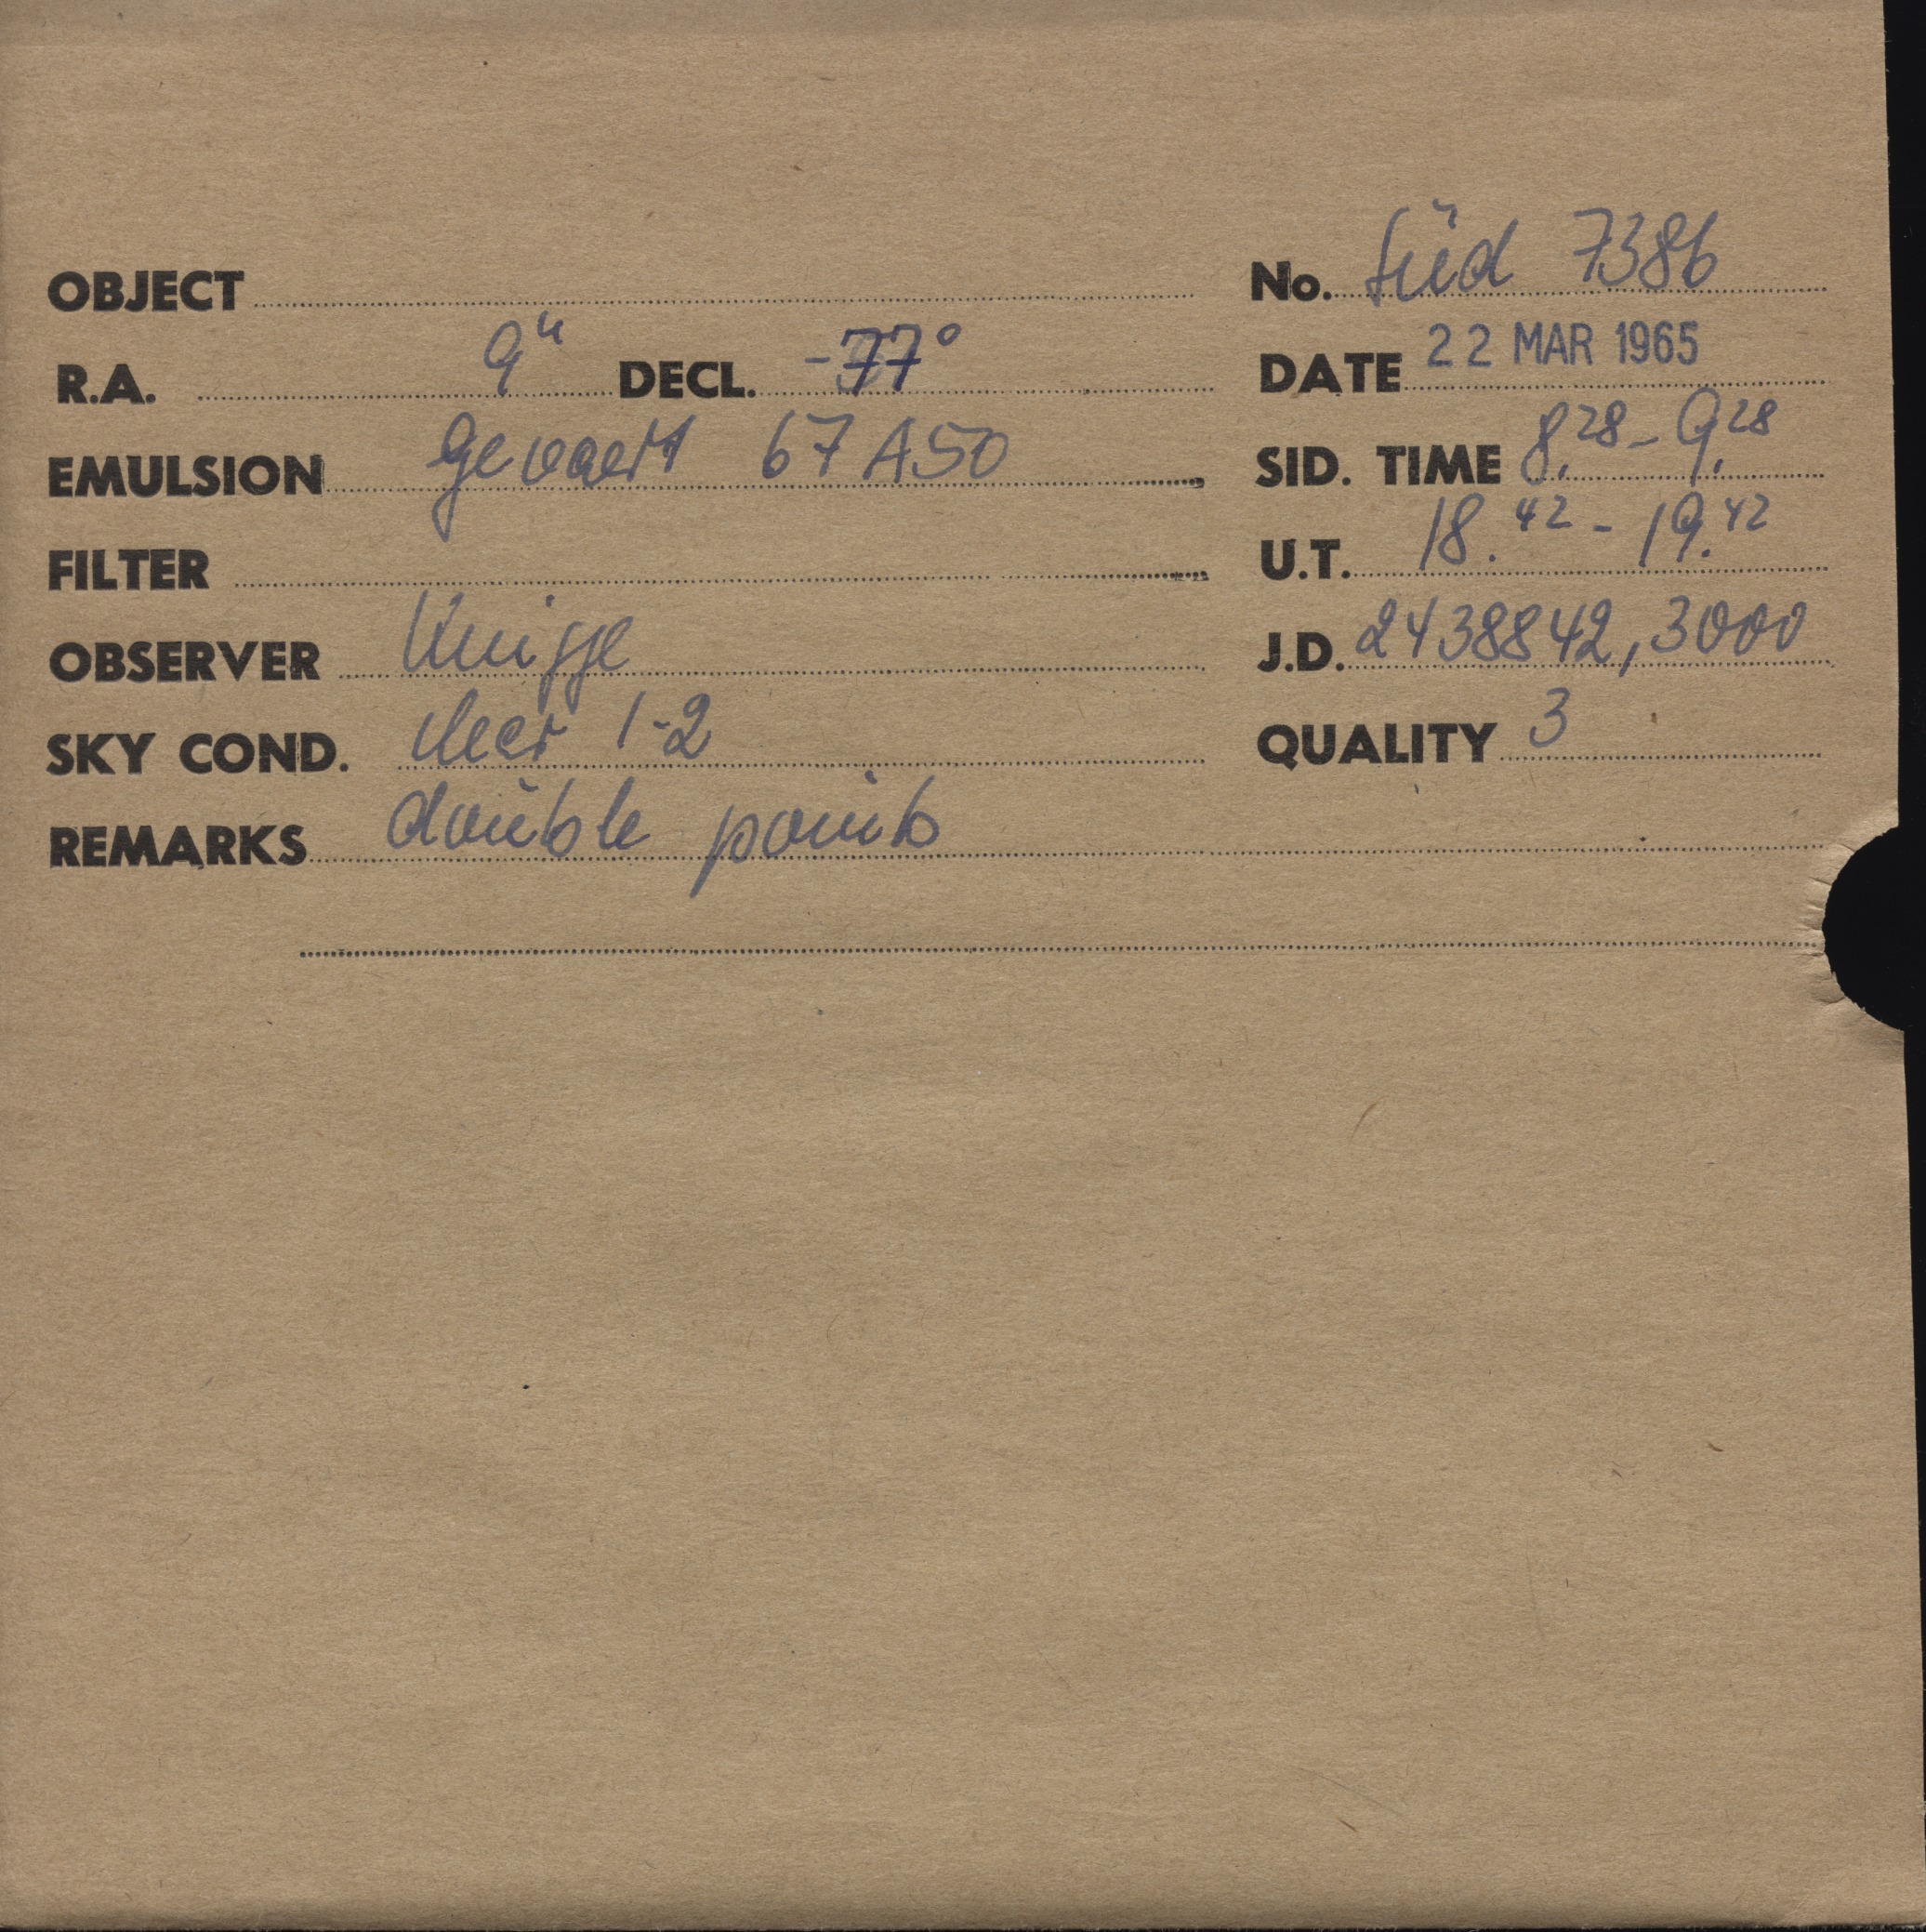 OBJECT No. Süd 7386
R.A. 9h DECL. -77° DATE 22 MAR 1965
EMULSION Gevaert 67A50 SID. TIME 8.28 - 9.28
FILTER U.T. 18.42 - 19.42
OBSERVER Knigge J.D. 2438842,3000
SKY COND. clear 1-2 QUALITY 3
REMARKS double points